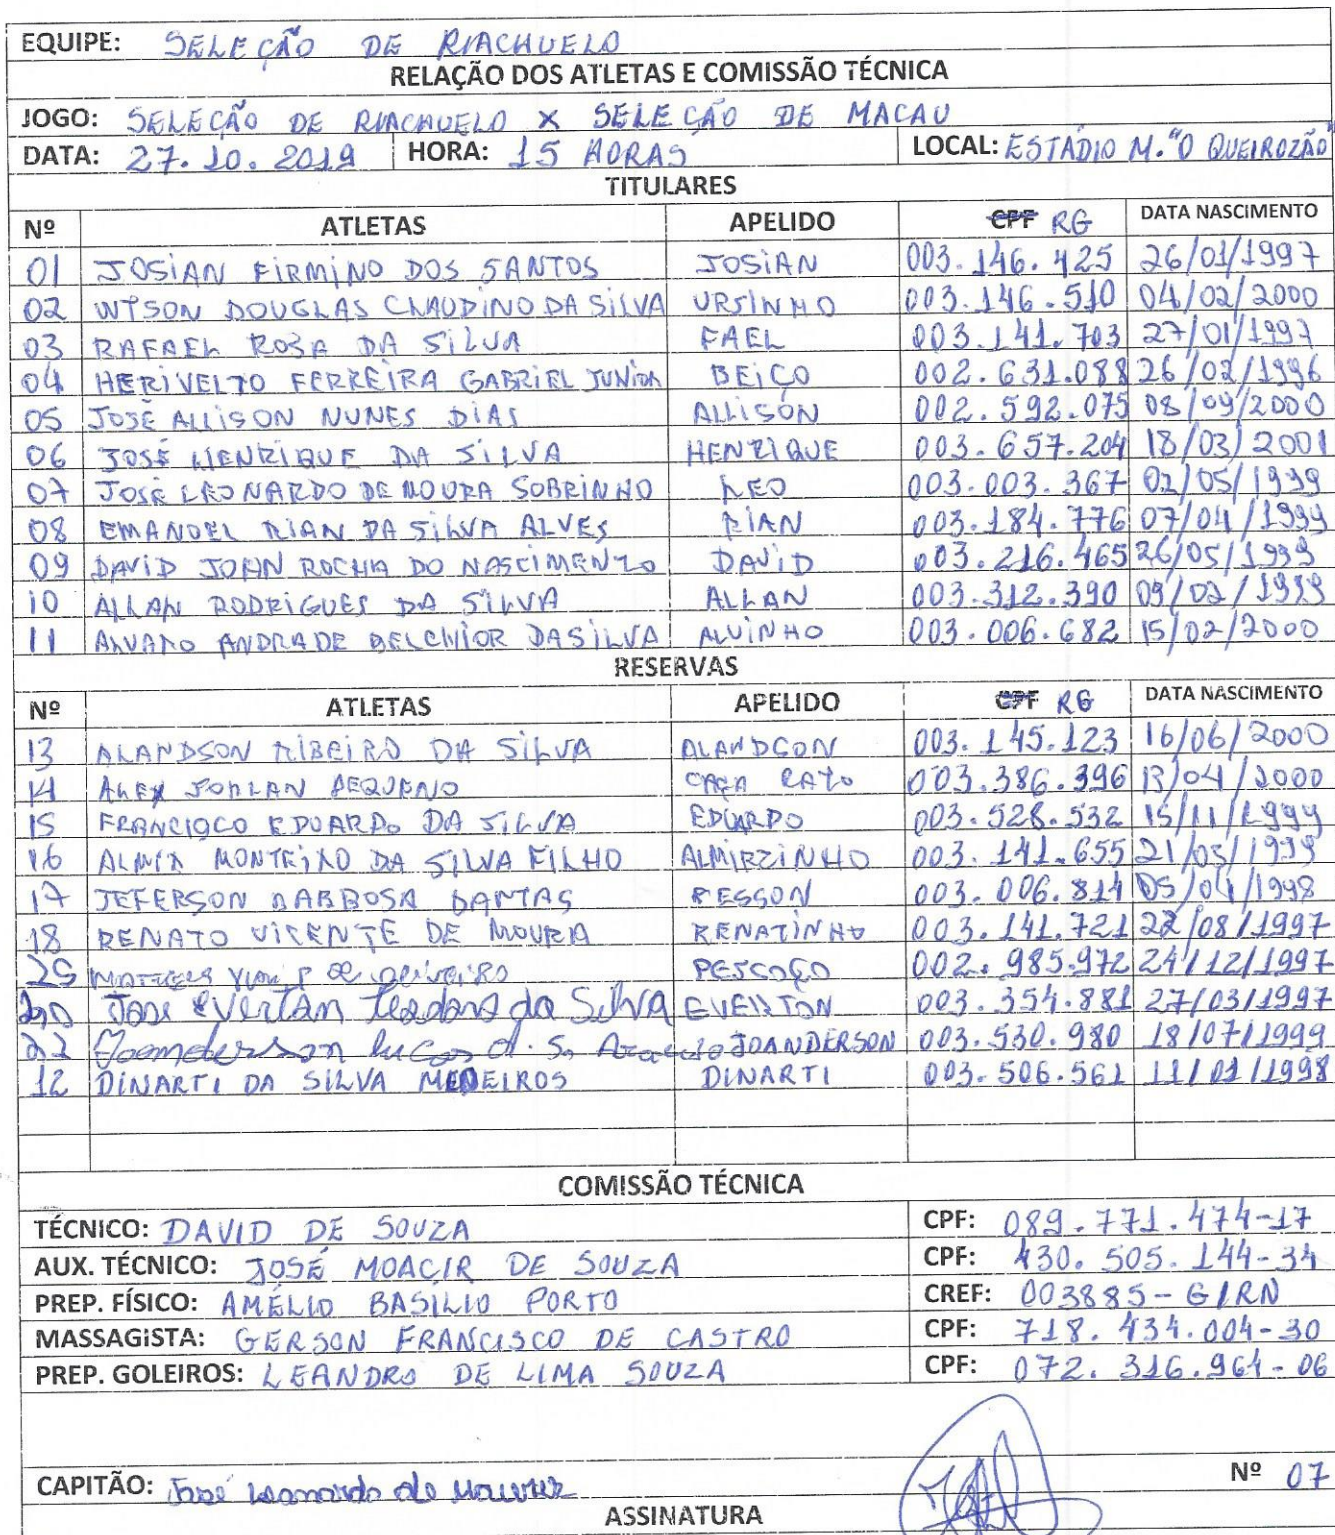 EQUIPE: SELEÇÃO DE RIACHUELO
RELAÇÃO DOS ATLETAS E COMISSÃO TÉCNICA
JOGO: SELEÇÃO DE RIACHUELO X SELEÇÃO DE MACAU
DATA: 27.10.2019 HORA: 15 HORAS LOCAL: ESTÁDIO M. "O QUEIROZÃO"
TITULARES
Nº ATLETAS APELIDO CPF RG DATA NASCIMENTO
01 JOSIAN FIRMINO DOS SANTOS JOSIAN 003.146.425 26/01/1997
02 WTSON DOUGLAS CLAUDINO DA SILVA URSINHO 003.146.510 04/02/2000
03 RAFAEL ROSA DA SILVA FAEL 003.141.703 27/01/1997
04 HERIVELTO FERREIRA GABRIEL JUNIOR BEIÇO 002.631.088 26/02/1996
05 JOSÉ ALLISON NUNES DIAS ALLISON 002.592.075 08/09/2000
06 JOSÉ HENRIQUE DA SILVA HENRIQUE 003.657.204 18/03/2001
07 JOSÉ LEONARDO DE MOURA SOBRINHO LEO 003.003.367 02/05/1999
08 EMANOEL RIAN DA SILVA ALVES RIAN 003.184.776 07/04/1999
09 DAVID JOHN ROCHA DO NASCIMENTO DAVID 003.216.465 26/05/1999
10 ALLAN RODRIGUES DA SILVA ALLAN 003.312.390 09/02/1999
11 ALVARO ANDRADE BELCHIOR DA SILVA ALVINHO 003.006.682 15/02/2000
RESERVAS
Nº ATLETAS APELIDO CPF RG DATA NASCIMENTO
13 ALANDSON RIBEIRO DA SILVA ALANDSON 003.145.123 16/06/2000
14 ALEX JOHLAN PEQUENO CAÇA RATO 003.386.396 13/04/2000
15 FRANCISCO EDUARDO DA SILVA EDUARDO 003.528.532 15/11/1999
16 ALMIR MONTEIRO DA SILVA FILHO ALMIRZINHO 003.141.655 21/03/1999
17 JEFERSON BARBOSA DANTAS RESSON 003.006.814 05/04/1998
18 RENATO VICENTE DE MOURA RENATINHO 003.141.721 22/08/1997
DE PESCOÇO 002.985.972 24/12/1997
20 Jose Evertan da Silva EVERTON 003.354.881 27/03/1997
Lucas d. S. JOANDERSON 003.530.980 18/07/1999
12 DINARTI DA SILVA MEDEIROS DINARTI 003.506.561 11/01/1998
COMISSÃO TÉCNICA
TÉCNICO: DAVID DE SOUZA CPF: 089.771.474-17
AUX. TÉCNICO: JOSÉ MOACIR DE SOUZA CPF: 430.505.144-34
PREP. FÍSICO: AMÉLIO BASILIO PORTO CREF: 003885-G/RN
MASSAGISTA: GERSON FRANCISCO DE CASTRO CPF: 718.434.004-30
PREP. GOLEIROS: LEANDRO DE LIMA SOUZA CPF: 072.316.964-06
CAPITÃO: José Leonardo de Moura Nº 07
ASSINATURA